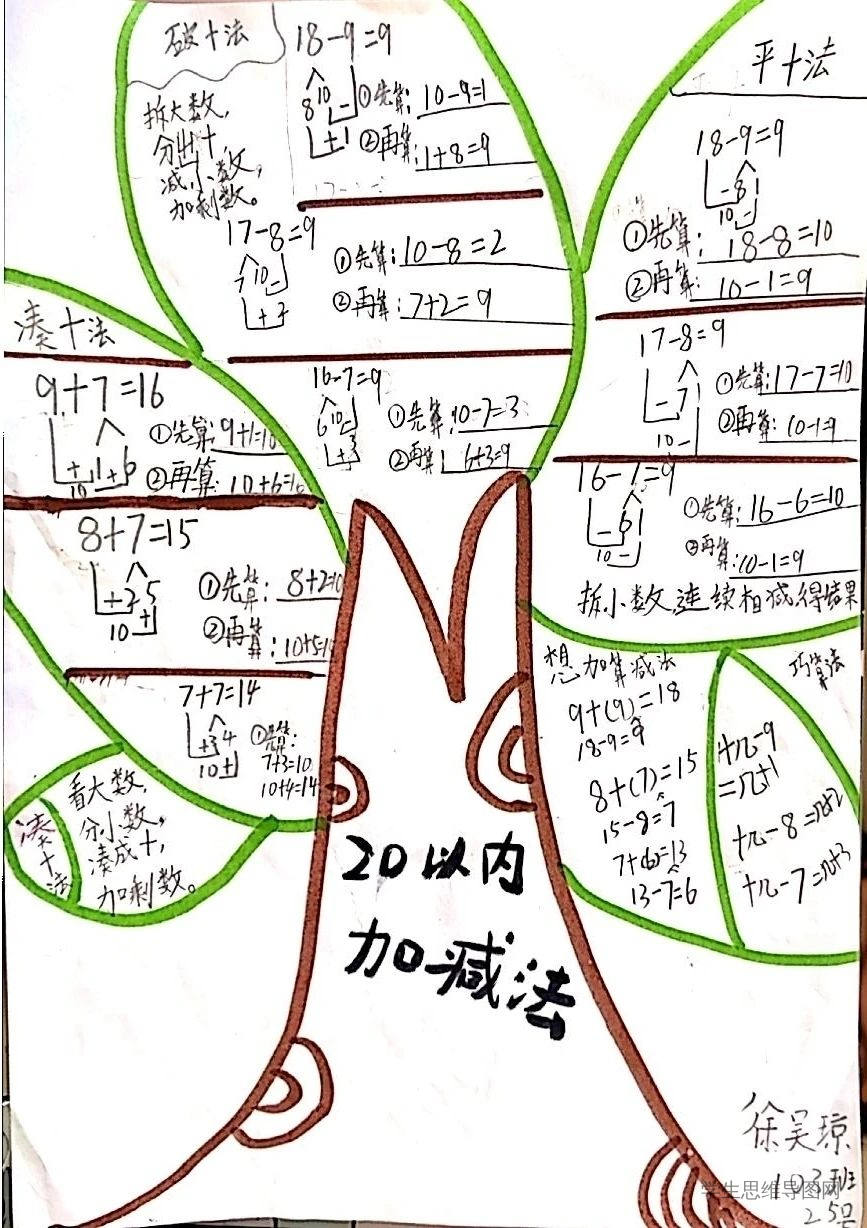 破十法
拆大数,
分出十,
减小数,
加剩数。
18-9=9
8 10
+1
①先算: 10-9=1
②再算: 1+8=9
17-8=9
7 10
+2
①先算: 10-8=2
②再算: 7+2=9
16-7=9
6 10
+3
①先算 10-7=3
②再算 6+3=9
平十法
18-9=9
8 1
10
①先算: 18-8=10
②再算: 10-1=9
17-8=9
7 1
10
①先算: 17-7=10
②再算: 10-1=9
16-7=9
6 1
10
①先算: 16-6=10
②再算: 10-1=9
拆小数,连续相减得结果
凑十法
9+7=16
+1+6
10
①先算: 9+1=10
②再算: 10+6=16
8+7=15
+2 5
10+
①先算: 8+2=10
②再算: 10+5=1
7+7=14
+3 4
10+
①
7+3=10
10+4=14
凑十法
看大数,
分小数,
凑成十,
加剩数。
想加算减法
9+(9)=18
18-9=9
8+(7)=15
15-8=7
7+(6)=13
13-7=6
巧算法
十几-9
=几+1
十几-8=几+2
十几-7=几+3
20以内
加减法
徐吴琼
103班
25号
学生思维导图网